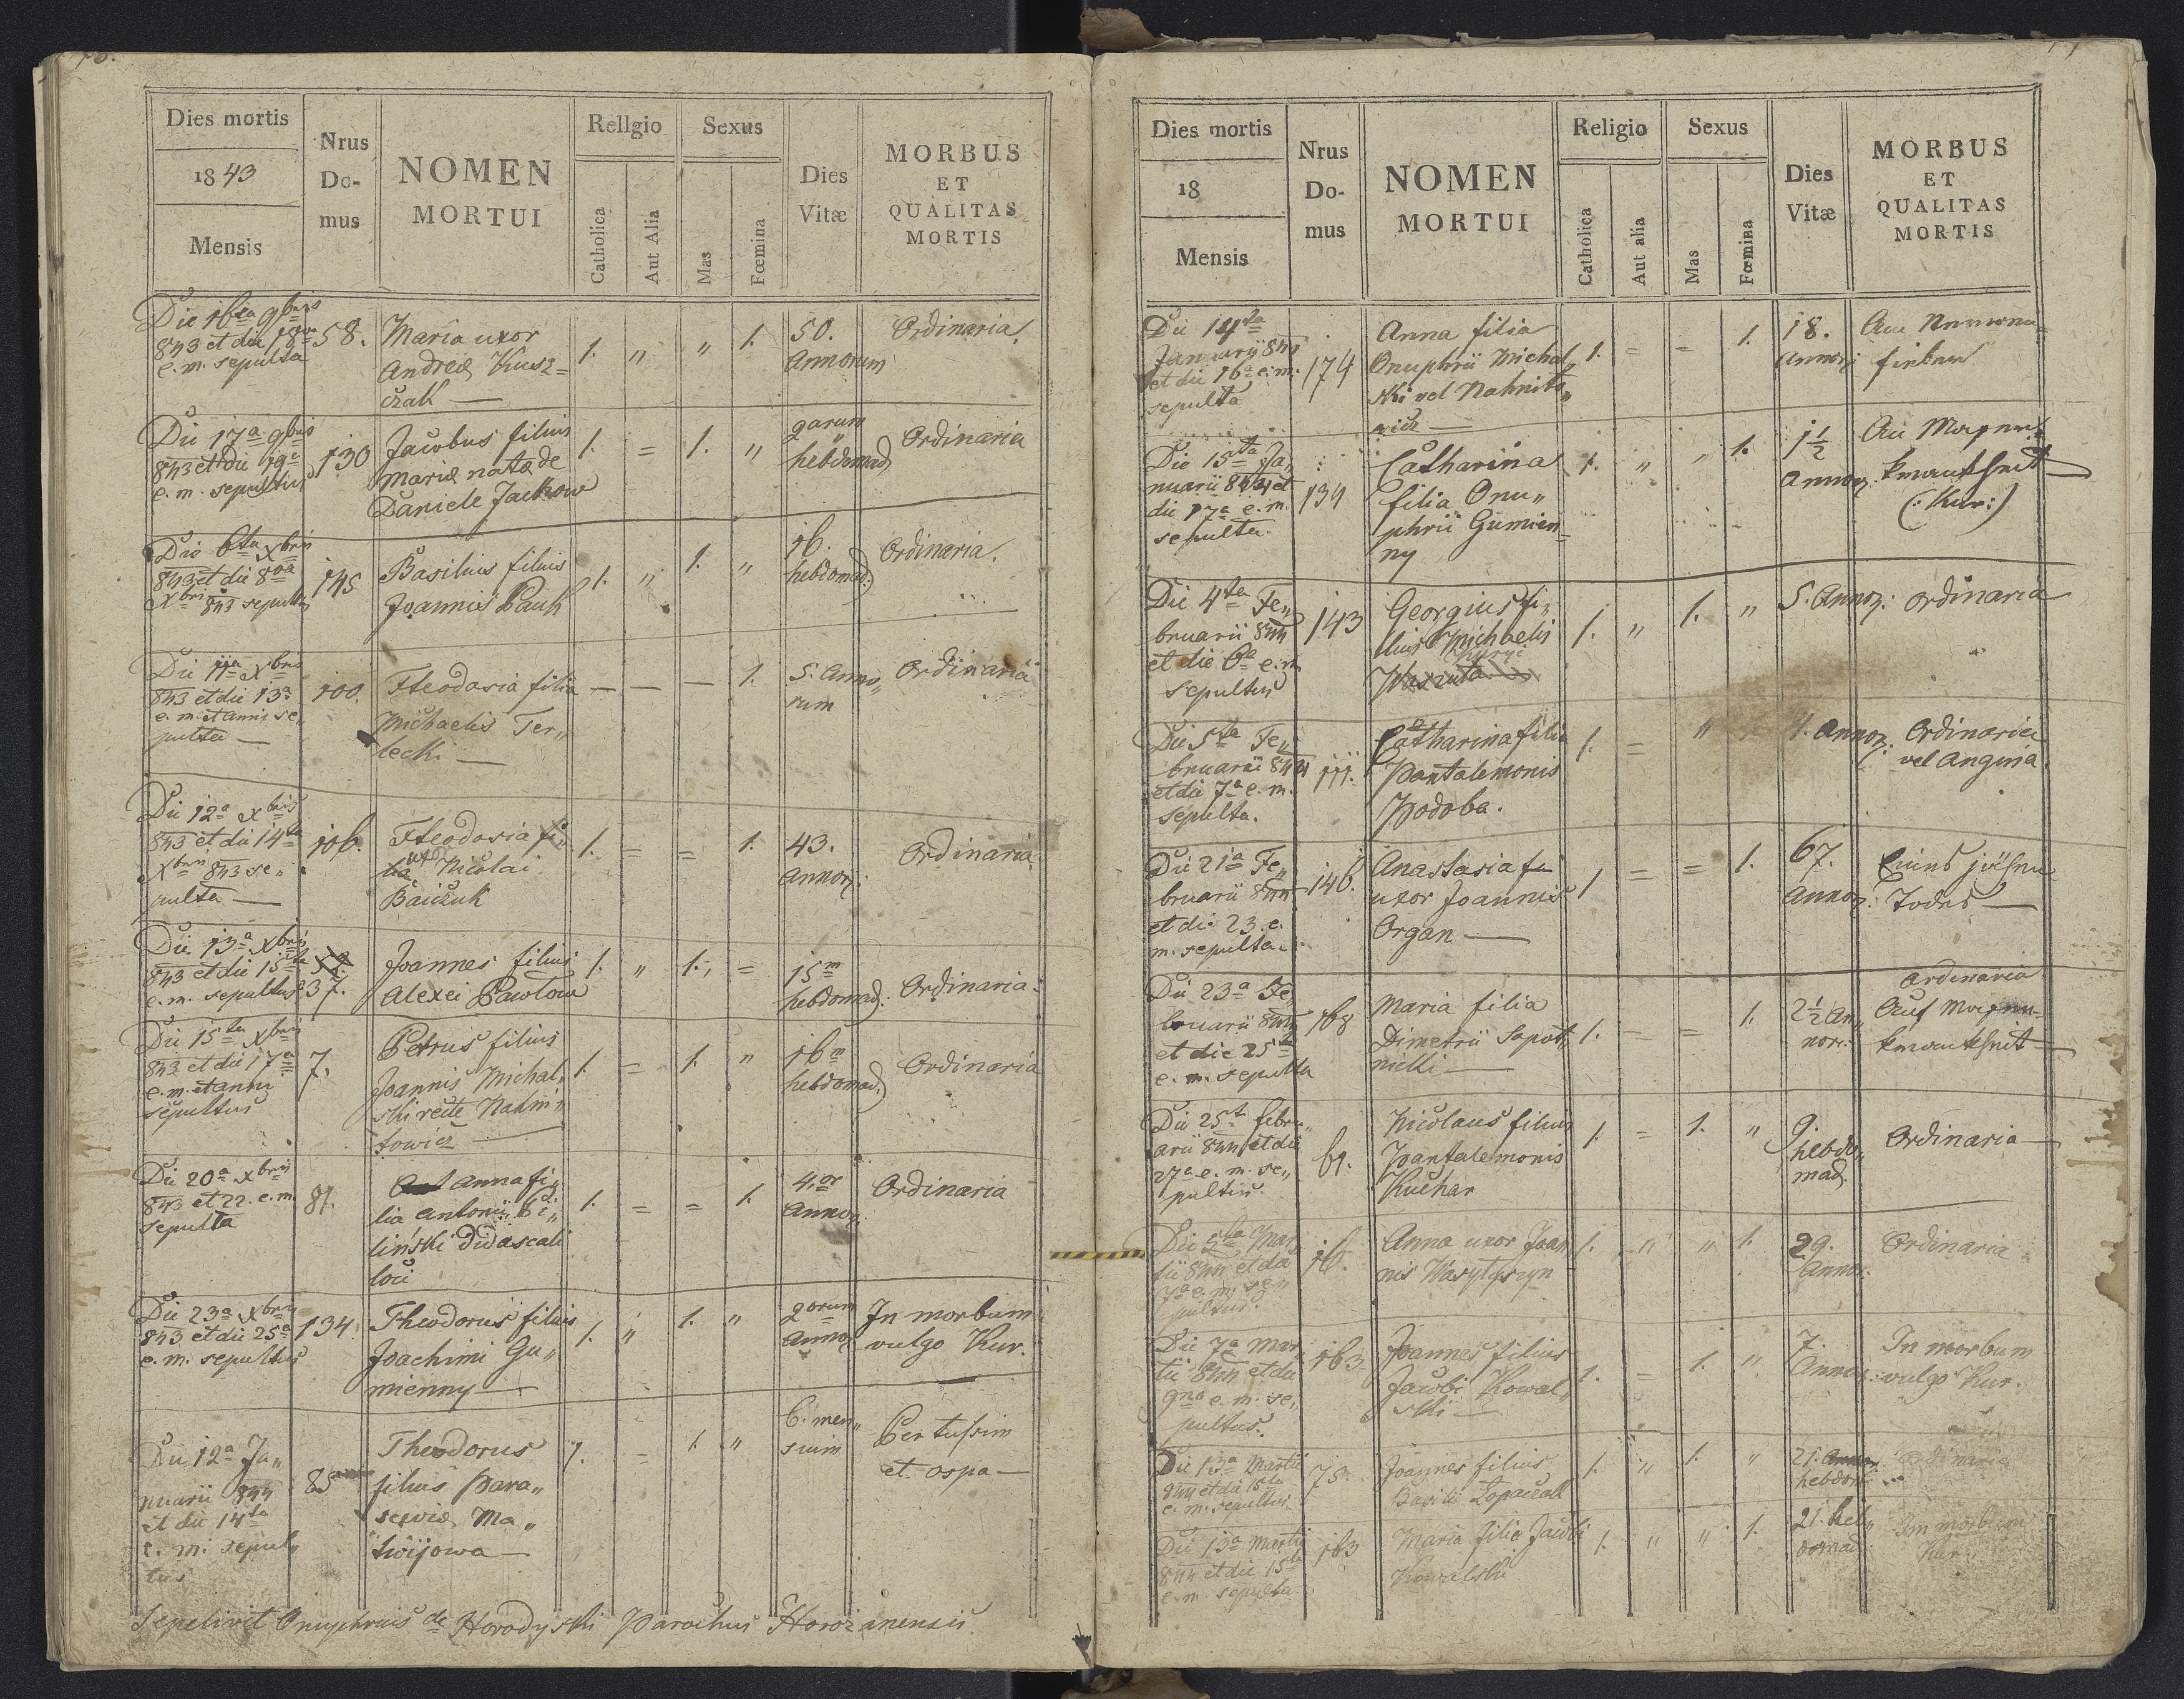 Dies mortis
1843
Mensis
Nrus
Do-
mus
NOMEN
MORTUI
Rellgio
Catholica
Aut Alia
Sexus
Mas
Fœmina
Dies
Vitæ
MORBUS
ET
QUALITAS
MORTIS
Die 16ta 9bris
843 et die 18va
e. m. sepulta
58.
Maria uxor
Andreæ Kusz=
czak —
1. " " 1.
50.
Annorum
Ordinaria.
Die 17a 9bris
843 et die 19a
e. m. sepultus
130
Jacobus filius
Mariæ natæ de
Daniele Jackow
1. = 1. "
2arum
hebdomad
Ordinaria
Die 6ta Xbris
843 et die 8va
Xbris 843 sepultus
145
Basilius filius
Joannis Pauk
1. " 1. "
16.
hebdomad:
Ordinaria.
Die 11a Xbris
843 et die 13a
e. m. et anni se„
pulta —
100.
Fteodosia filia
Michaelis Ter„
lecki —
— — — 1.
5. Anno„
rum
Ordinaria
Die 12a Xbris
843 et die 14ta
Xbris 843 se„
pulta —
106.
Fteodosia fi„
lia uxor Nicolai
Baiczuk
1. = = 1.
43.
Annor:
Ordinaria
Die 13a Xbris
843 et die 15ta
e. m. sepultus
37.
Joannes filius
Alexei Pawlow
1. " 1. =
15m
hebdomad:
Ordinaria:
Die 15ta Xbris
843 et die 17a
e. m. et anni
sepultus
7.
Petrus filius
Joannis Michal„
ski recte Nahni„
towicz —
1. = 1. "
16m
hebdomad:
Ordinaria
Die 20a Xbris
843 et 22. e. m.
sepulta
81.
Anna fi„
lia Antonii Bi„
liński didascali
loci
1. = = 1.
4.or
Annor
Ordinaria
Die 23a Xbris
843 et die 25a
e. m. sepultus
134
Theodorus filius
Joachimi Gu„
mienny —
1. " 1. "
2orum
Annor
In morbum
vulgo Kur.
Die 12a Ja„
nuarii 844
et die 14ta
e. m. sepul„
tus
85
Theodorus
filius Para„
scevie Ma„
twijowa —
1. = 1. "
6. men„
sium
Per tussim
et ospa —
Sepelivit Onuphrius de Horodyski Parochus Horożanensis.
Dies mortis
18
Mensis
Nrus
Do-
mus
NOMEN
MORTUI
Religio
Catholica
Aut alia
Sexus
Mas
Fœmina
Dies
Vitæ
MORBUS
ET
QUALITAS
MORTIS
Die 14ta
Januarii 844
et die 16a e. m.
sepulta
174
Anna filia
Onuphrii Michal„
ski vel Nahnito„
wicz —
1. = = 1.
18.
Annor:
Die 15ta Ja„
nuarii 844 et
die 17a e. m.
sepulta.
134
Catharina
filia Onu„
phrii Gumien„
ny
1. " " 1.
1½
Annor:
(: Kur :)
Die 4ta Fe„
bruarii 844
et die 6a e. m.
sepultus
143
Georgius fi„
lius Michaelis
1. " 1. "
5. Annor:
Ordinaria
Die 5ta Fe„
bruarii 844
et die 7a e. m.
sepulta.
111.
Catharina filia
Pantalemonis
Podoba.
1. = "
1. Annor:
Ordinaria
vel Angina
Die 21a Fe„
bruarii 844
et die 23. e.
m. sepulta.
146.
Anastasia
uxor Joannis
Organ —
1 = = 1.
67.
Annor:
Die 23a Fe„
bruarii 844
et die 25ta
e. m. sepulta
168
Maria filia
Dimetrii Sapot„
nicki —
1. = = 1.
2½ An„
nor:
Ordinaria
Die 25t Febru„
arii 844 et die
27a e. m. se„
pultus.
69.
Nicolaus filius
Pantalemonis
Kuchar
1. = 1. "
9.
hebdo„
mad.
Ordinaria —
Die 5ta Mar„
tii 844 et die
7a e. m. se„
pultus.
16.
Anna uxor Joan
nis Wasylyszyn
1. " " 1.
29.
Annor.
Ordinaria
Die 7a Mar„
tii 844 et die
9na e. m. se„
pultus.
163
Joannes filius
Jacobi Kowal„
ski —
1. = 1. "
7.
Annor:
In morbum
vulgo Kur.
Die 13a Martii
844 et die 15ta
e. m. sepultus
75.
Joannes filius
Basilii Łopaczak
1. " 1. "
21.
hebdom
Ordinaria
Die 13a Martii
844 et die 15ta
e. m. sepulta
163
Maria filia Jacobi
Kowalski
1. " " 1.
21. heb„
domad
In morbum
Kur.